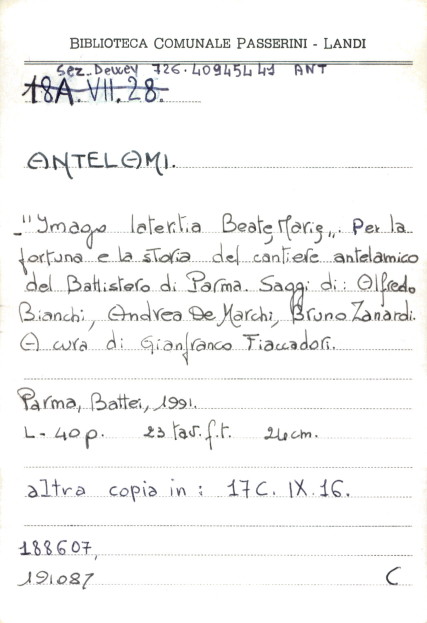 BIBLIOTECA COMUNALE PASSERINI - LANDI
Sez. Dewey 726.40945441 ANT
18A.VII.28.
ANTELAMI.
- "Ymago lateritia Beate Marie„. Per la
fortuna e la storia del cantiere antelamico
del Battistero di Parma. Saggi di: Alfredo
Bianchi, Andrea De Marchi, Bruno Zanardi.
A cura di Gianfranco Fiaccadori.
Parma, Battei, 1991.
L - 40 p. 23 tav. f.t. 24 cm.
altra copia in: 17C. IX. 16.
188607,
191087 C